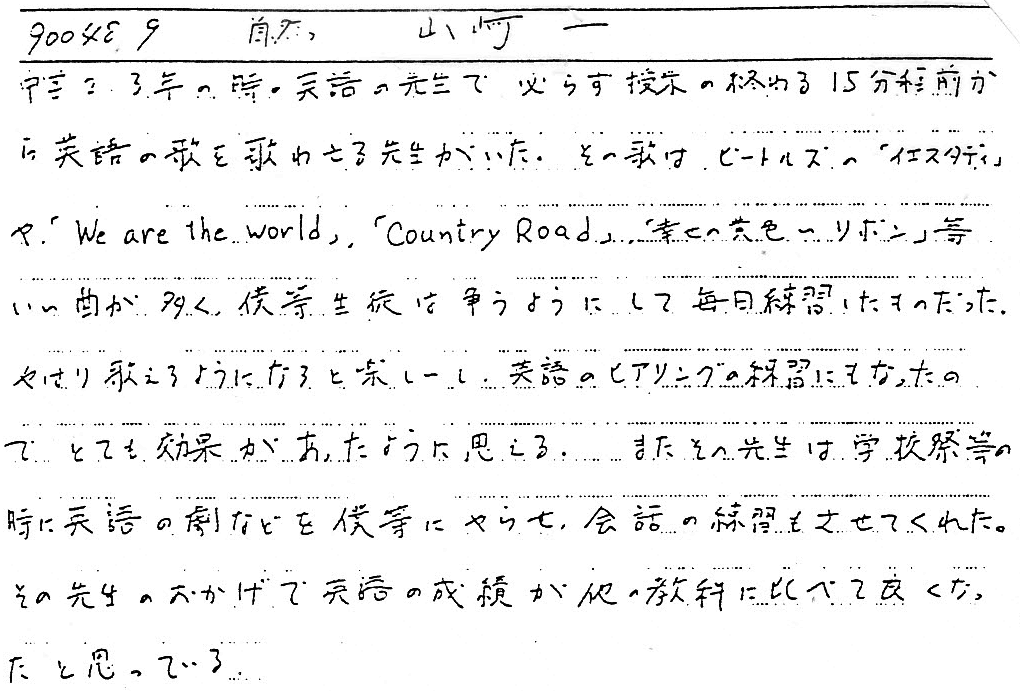 9004E 9 自然 山崎 一
中学 3年の時の英語の先生で 必らず授業の終わる15分程前か
ら英語の歌を歌わせる先生がいた。その歌は ビートルズの「イエスタディ」
や.「We are the world」,「Country Road」,「幸せの黄色いリボン」等
いい曲が 多く, 僕等生徒は争うようにして毎日練習したものだった.
やはり歌えるようになると楽しいし. 英語のヒアリングの練習にもなったの
で とても効果があったように思える. またその先生は学校祭等の
時に英語の劇などを僕等にやらせ, 会話の練習もさせてくれた。
その先生のおかげで英語の成績が他の教科に比べて良くなっ
たと思っている.